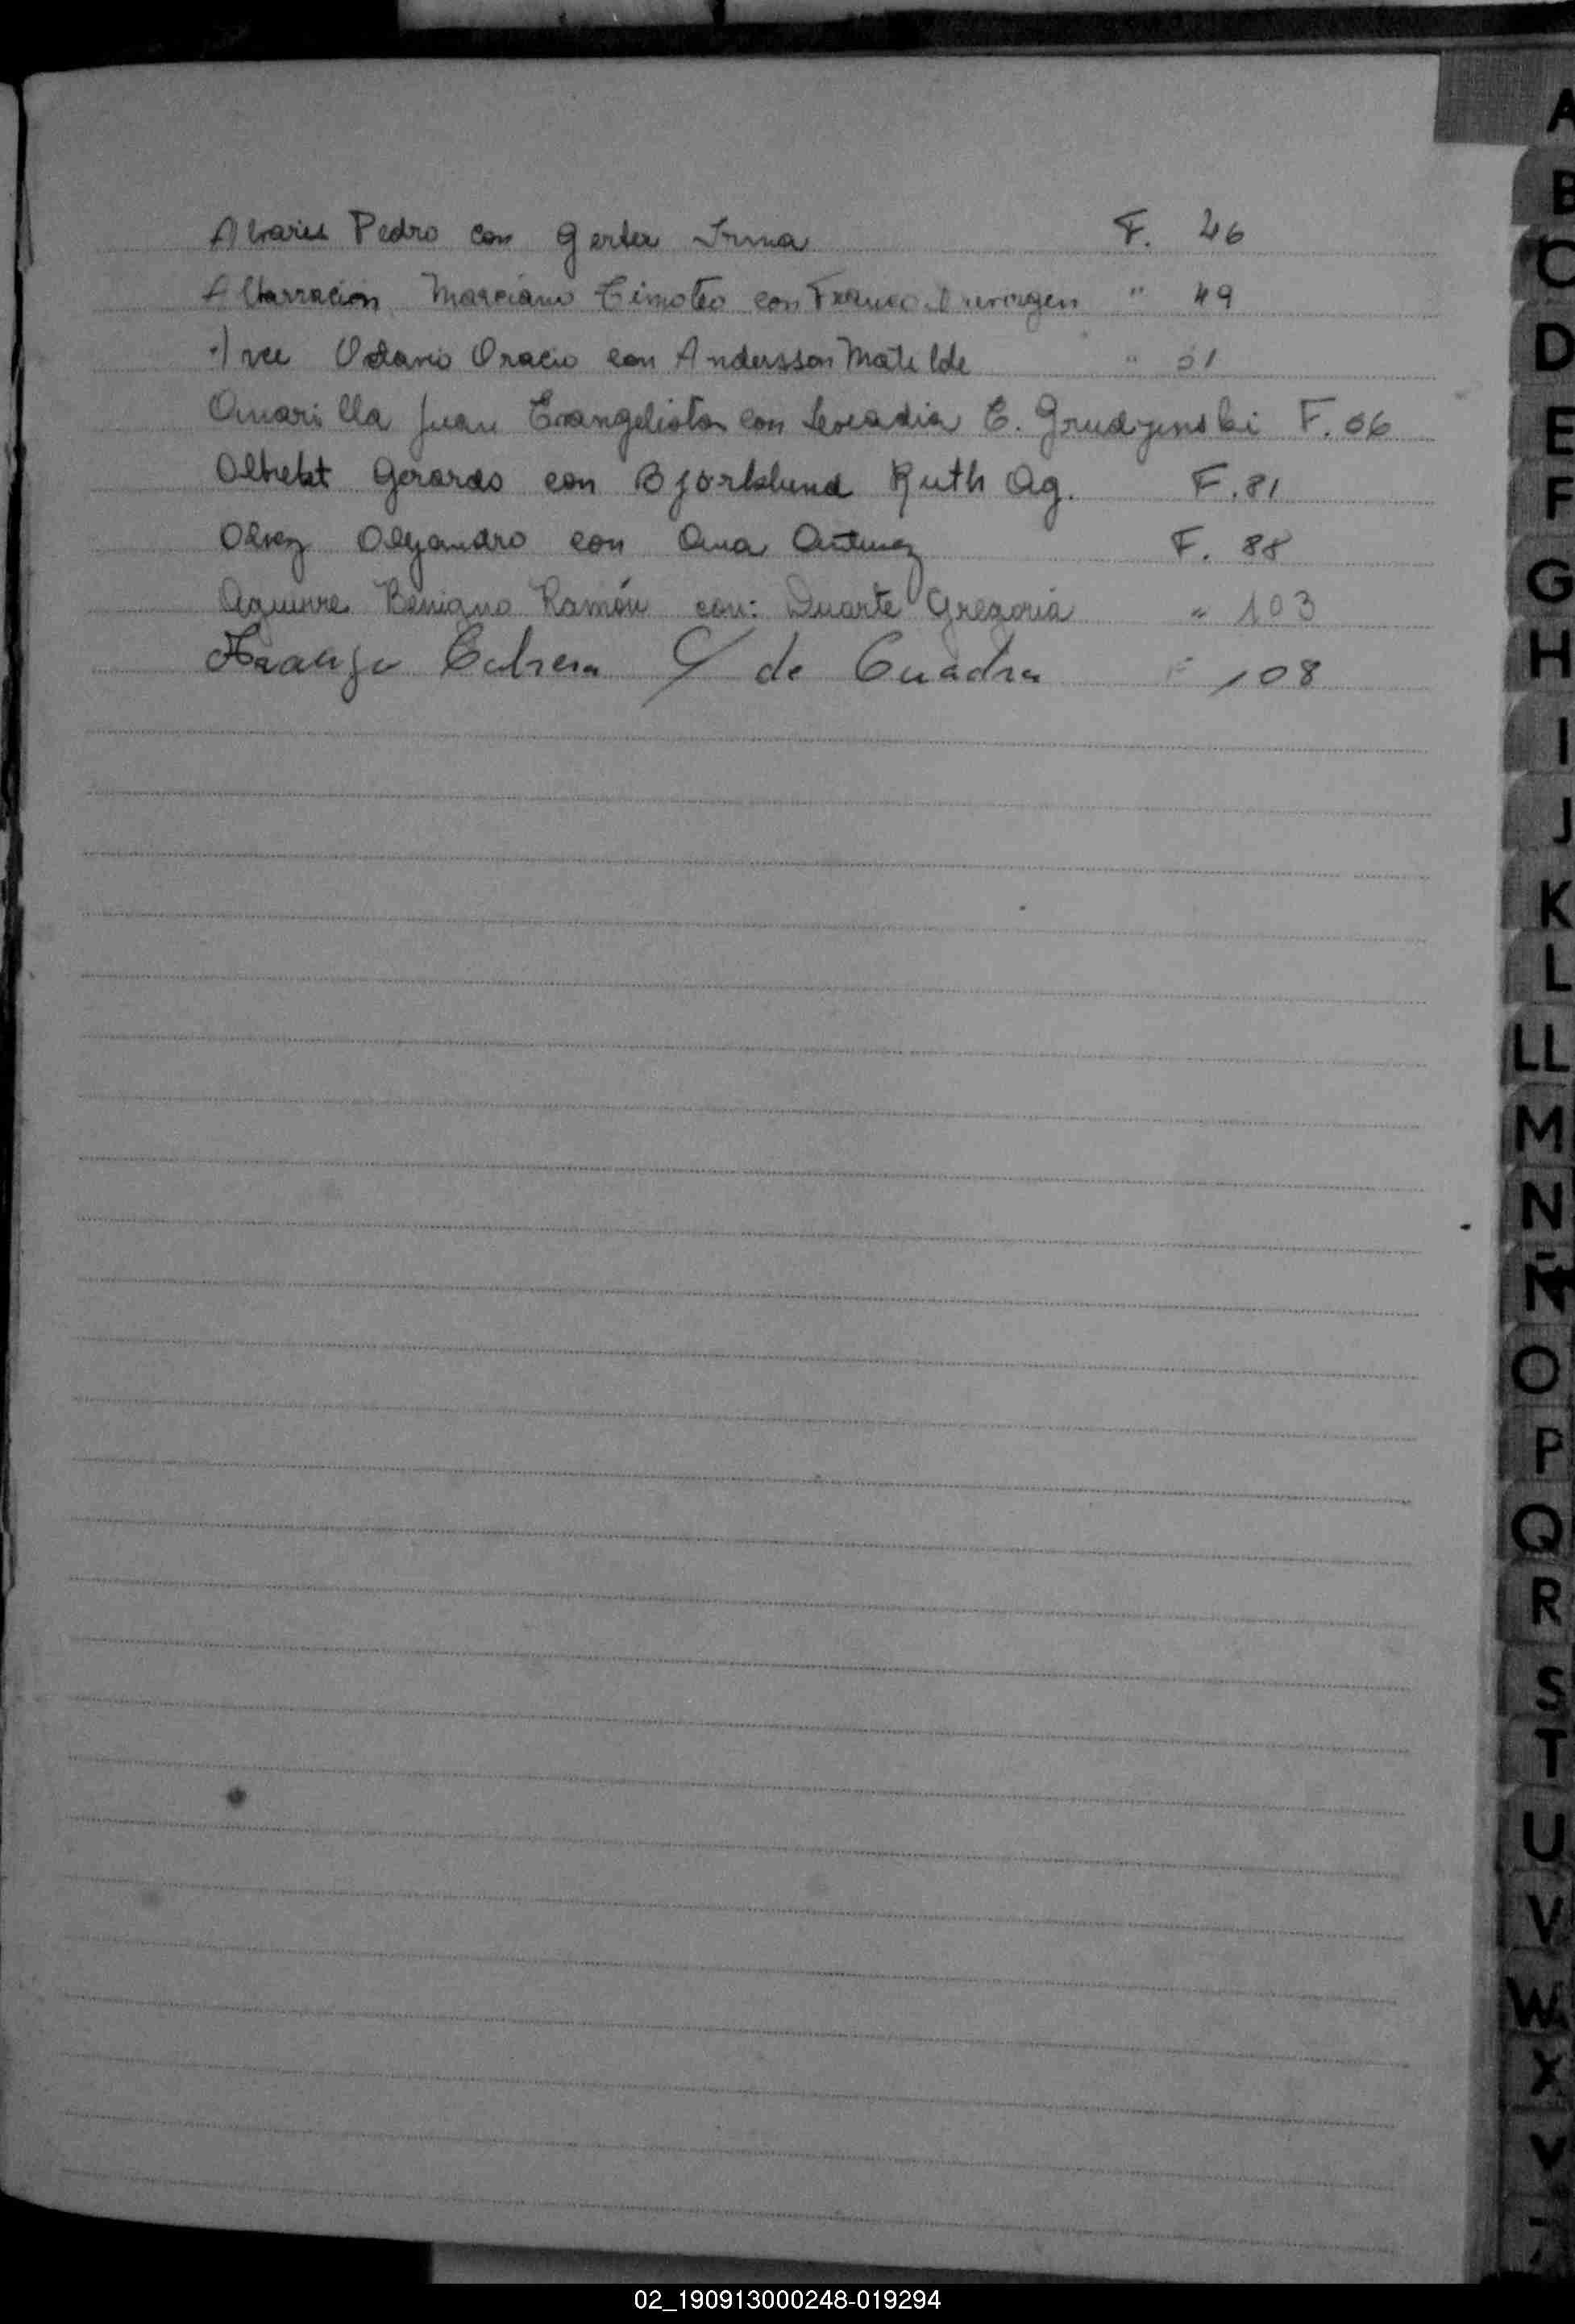 Alvares Pedro con Gerter Irma F. 46
Albarracion Marciano Timoteo con Franco " 49
Octavio Oracio con Andersson Matilde " 51
Amarilla Juan Evangelista con Leocadia E. Grudzinski F. 66
Albrekt Gerardo con Bjorklund Ruth Ag. F. 81
Alvez Alejandro con Ana Antunez F. 88
Aguirre Benigno Ramón con: Duarte Gregoria " 103
Cabrera C/ de Cuadra 108
A
B
C
D
E
F
G
H
I
J
K
L
LL
M
N
Ñ
O
P
Q
R
S
T
U
V
W
X
Y
02_190913000248-019294